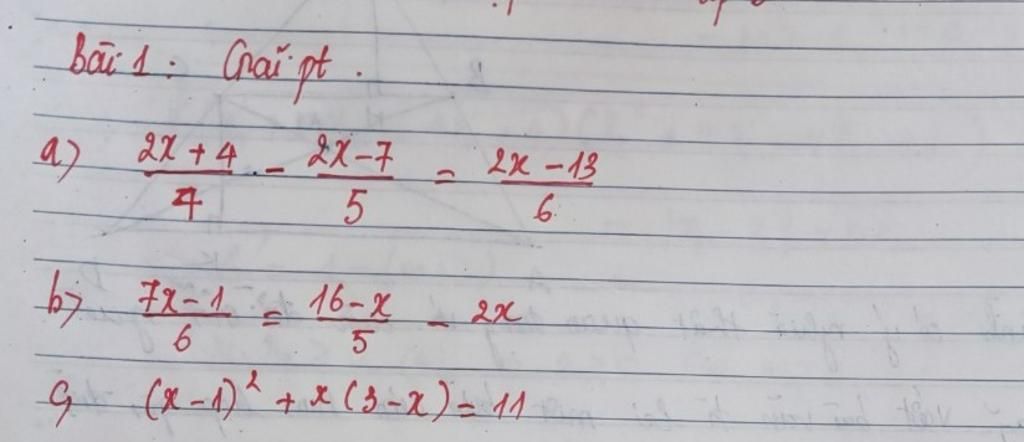 Bài 1: Giải pt.
a) \frac{2x+4}{4} - \frac{2x-7}{5} = \frac{2x-13}{6}
b) \frac{7x-1}{6} = \frac{16-x}{5} - 2x
c) (x-1)^2 + x(3-x) = 11